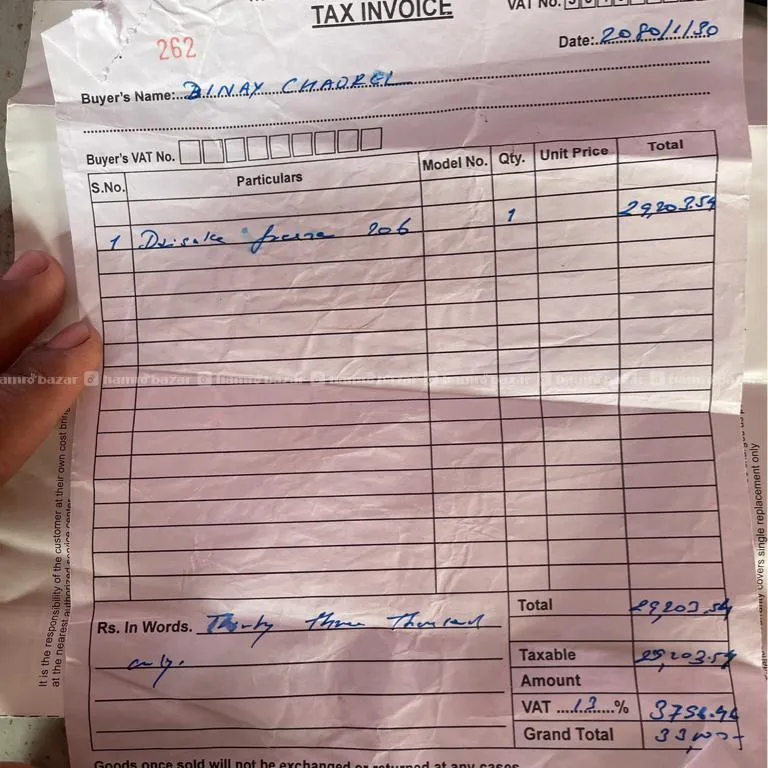 TAX INVOICE
VAT No.
262
Date: 2080/1/30
Buyer's Name: BINAY CHAOREL
Buyer's VAT No.
S.No. Particulars Model No. Qty. Unit Price Total
1 206 1 29,203.54
hamro bazar hamro bazar hamro bazar hamro bazar hamro bazar hamro bazar
It is the responsibility of the customer at their own cost
at the nearest authorized service center
covers single replacement only
Total 29,203.54
Rs. In Words. Thirty three thousand
only.
Taxable 29,203.54
Amount
VAT ....13....% 3796.46
Grand Total 33,000-
Goods once sold will not be exchanged or returned at any cases